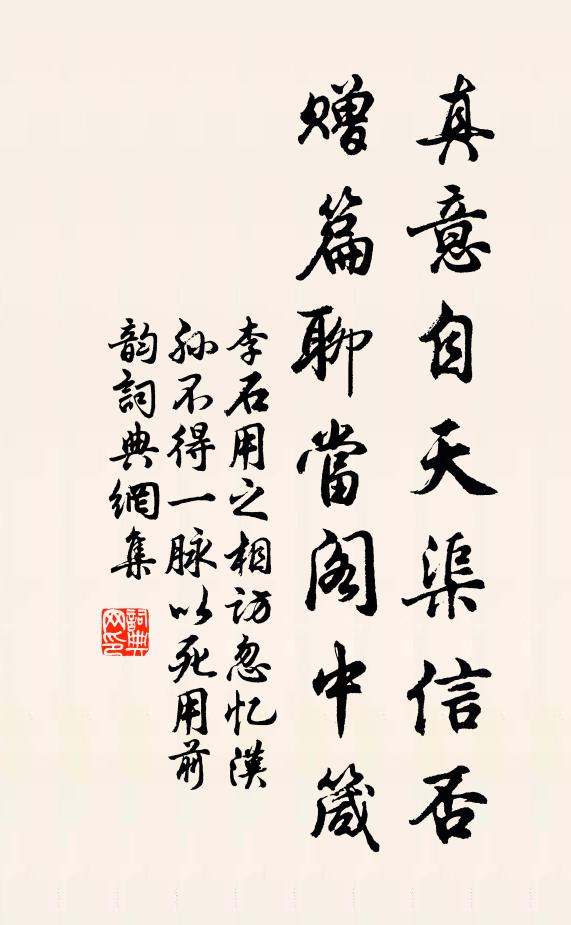 真意自天渠信否
贈篇聊當閣中箴
李石用之相訪忽忆漢
孙不得一脉以死用前
韵詞典網集
詞典
网印